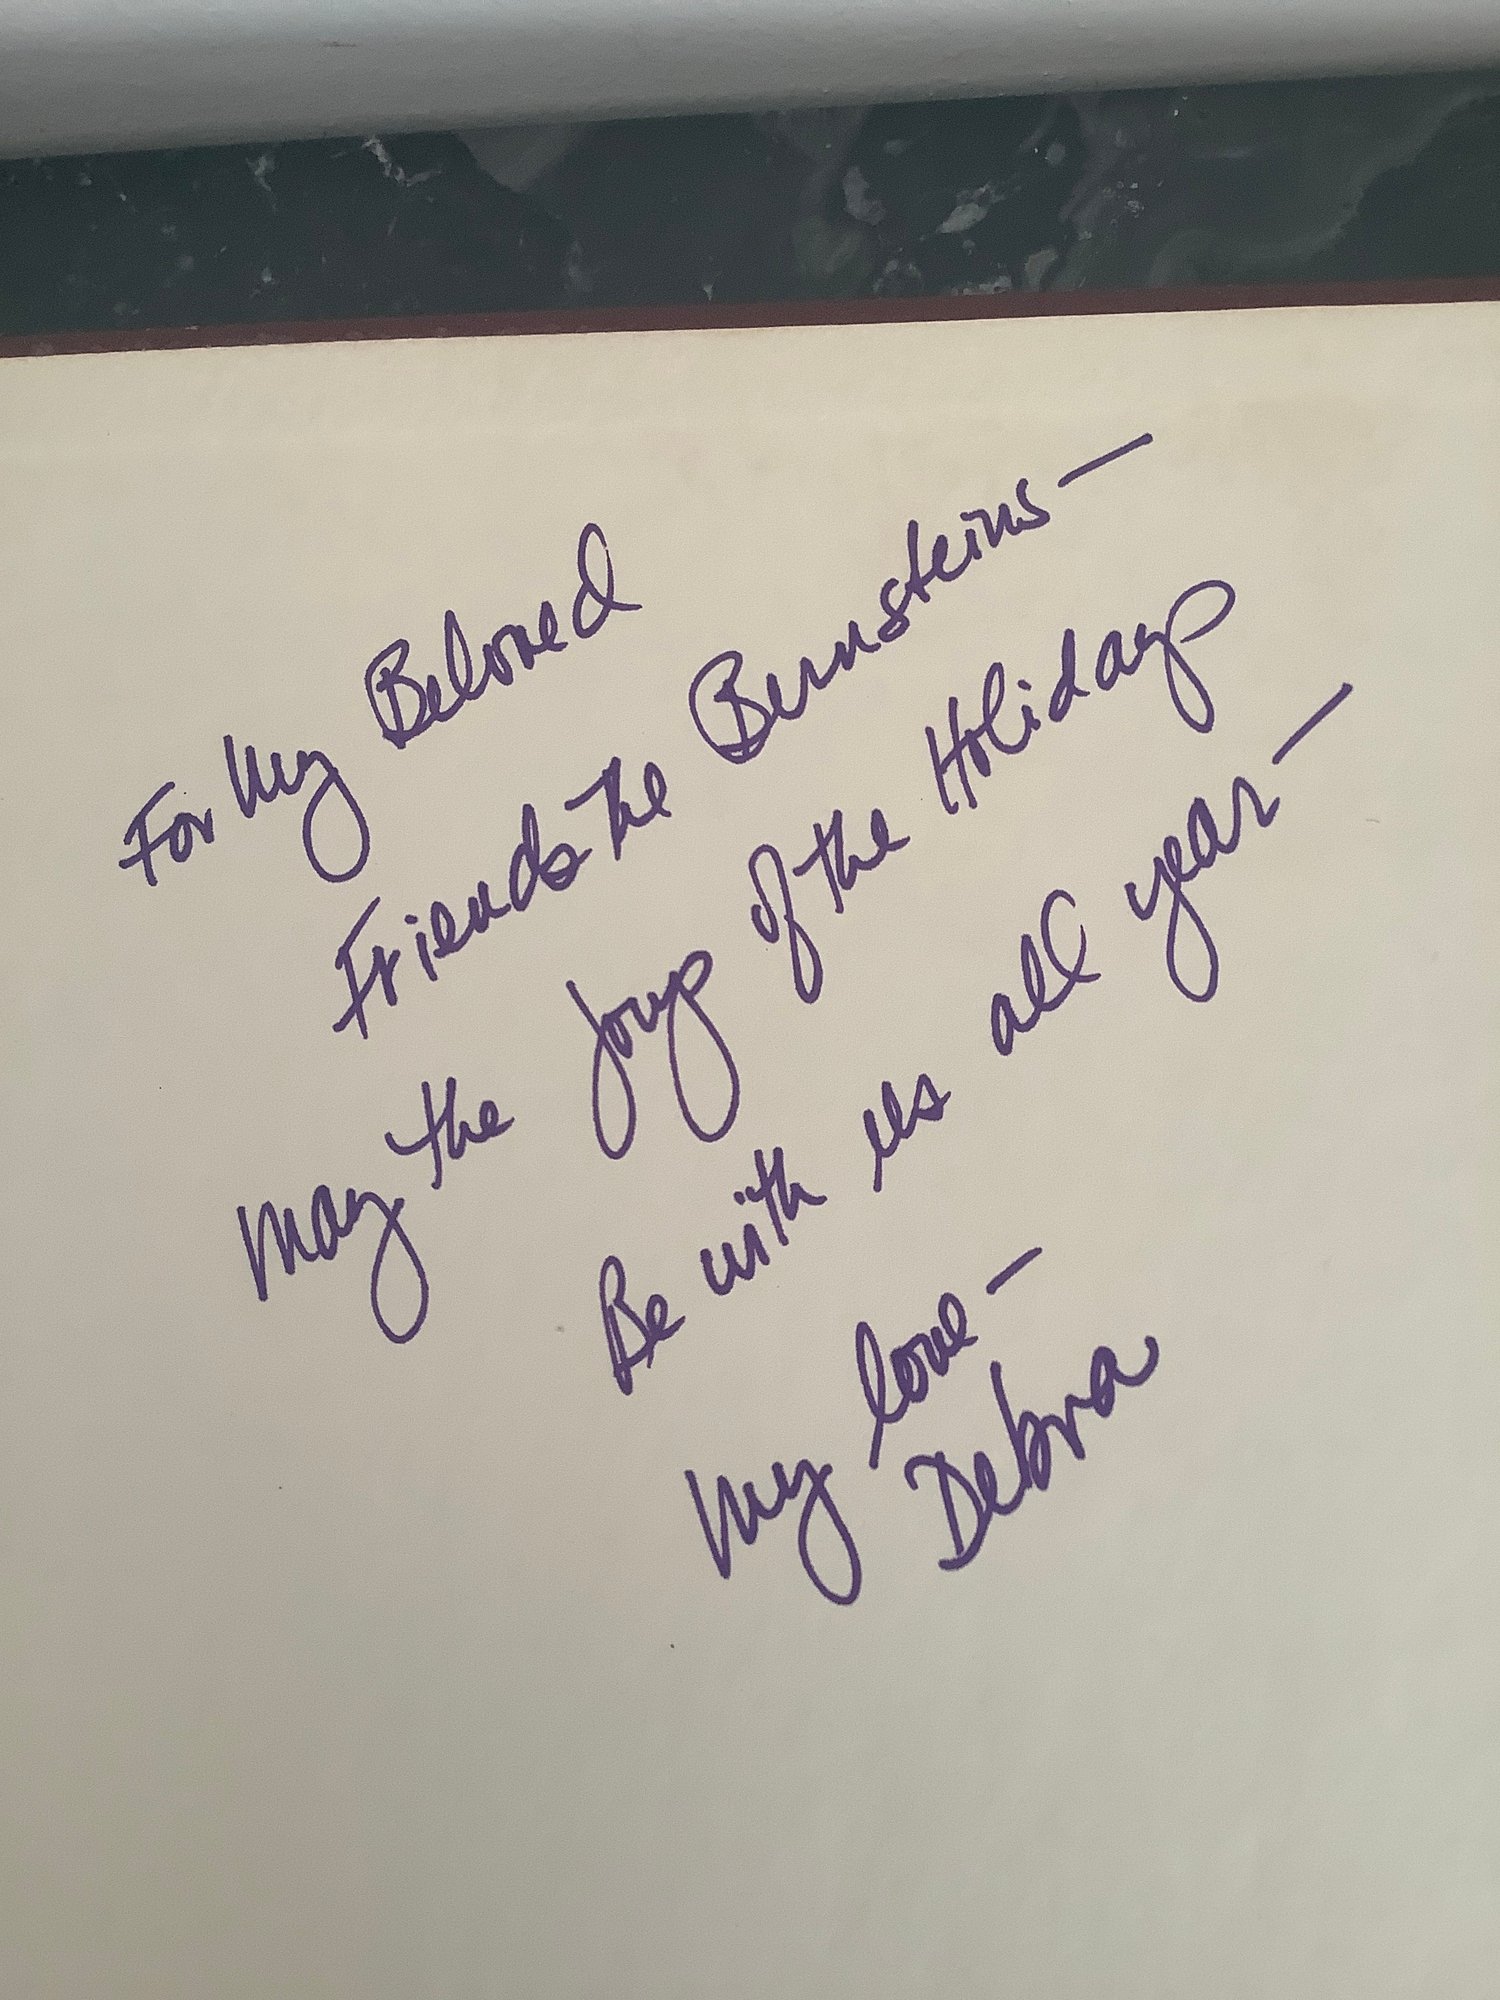 For My Beloved
Friends The Bernsteins —
May the Joys of the Holidays
Be with us all year —
My love —
Debra